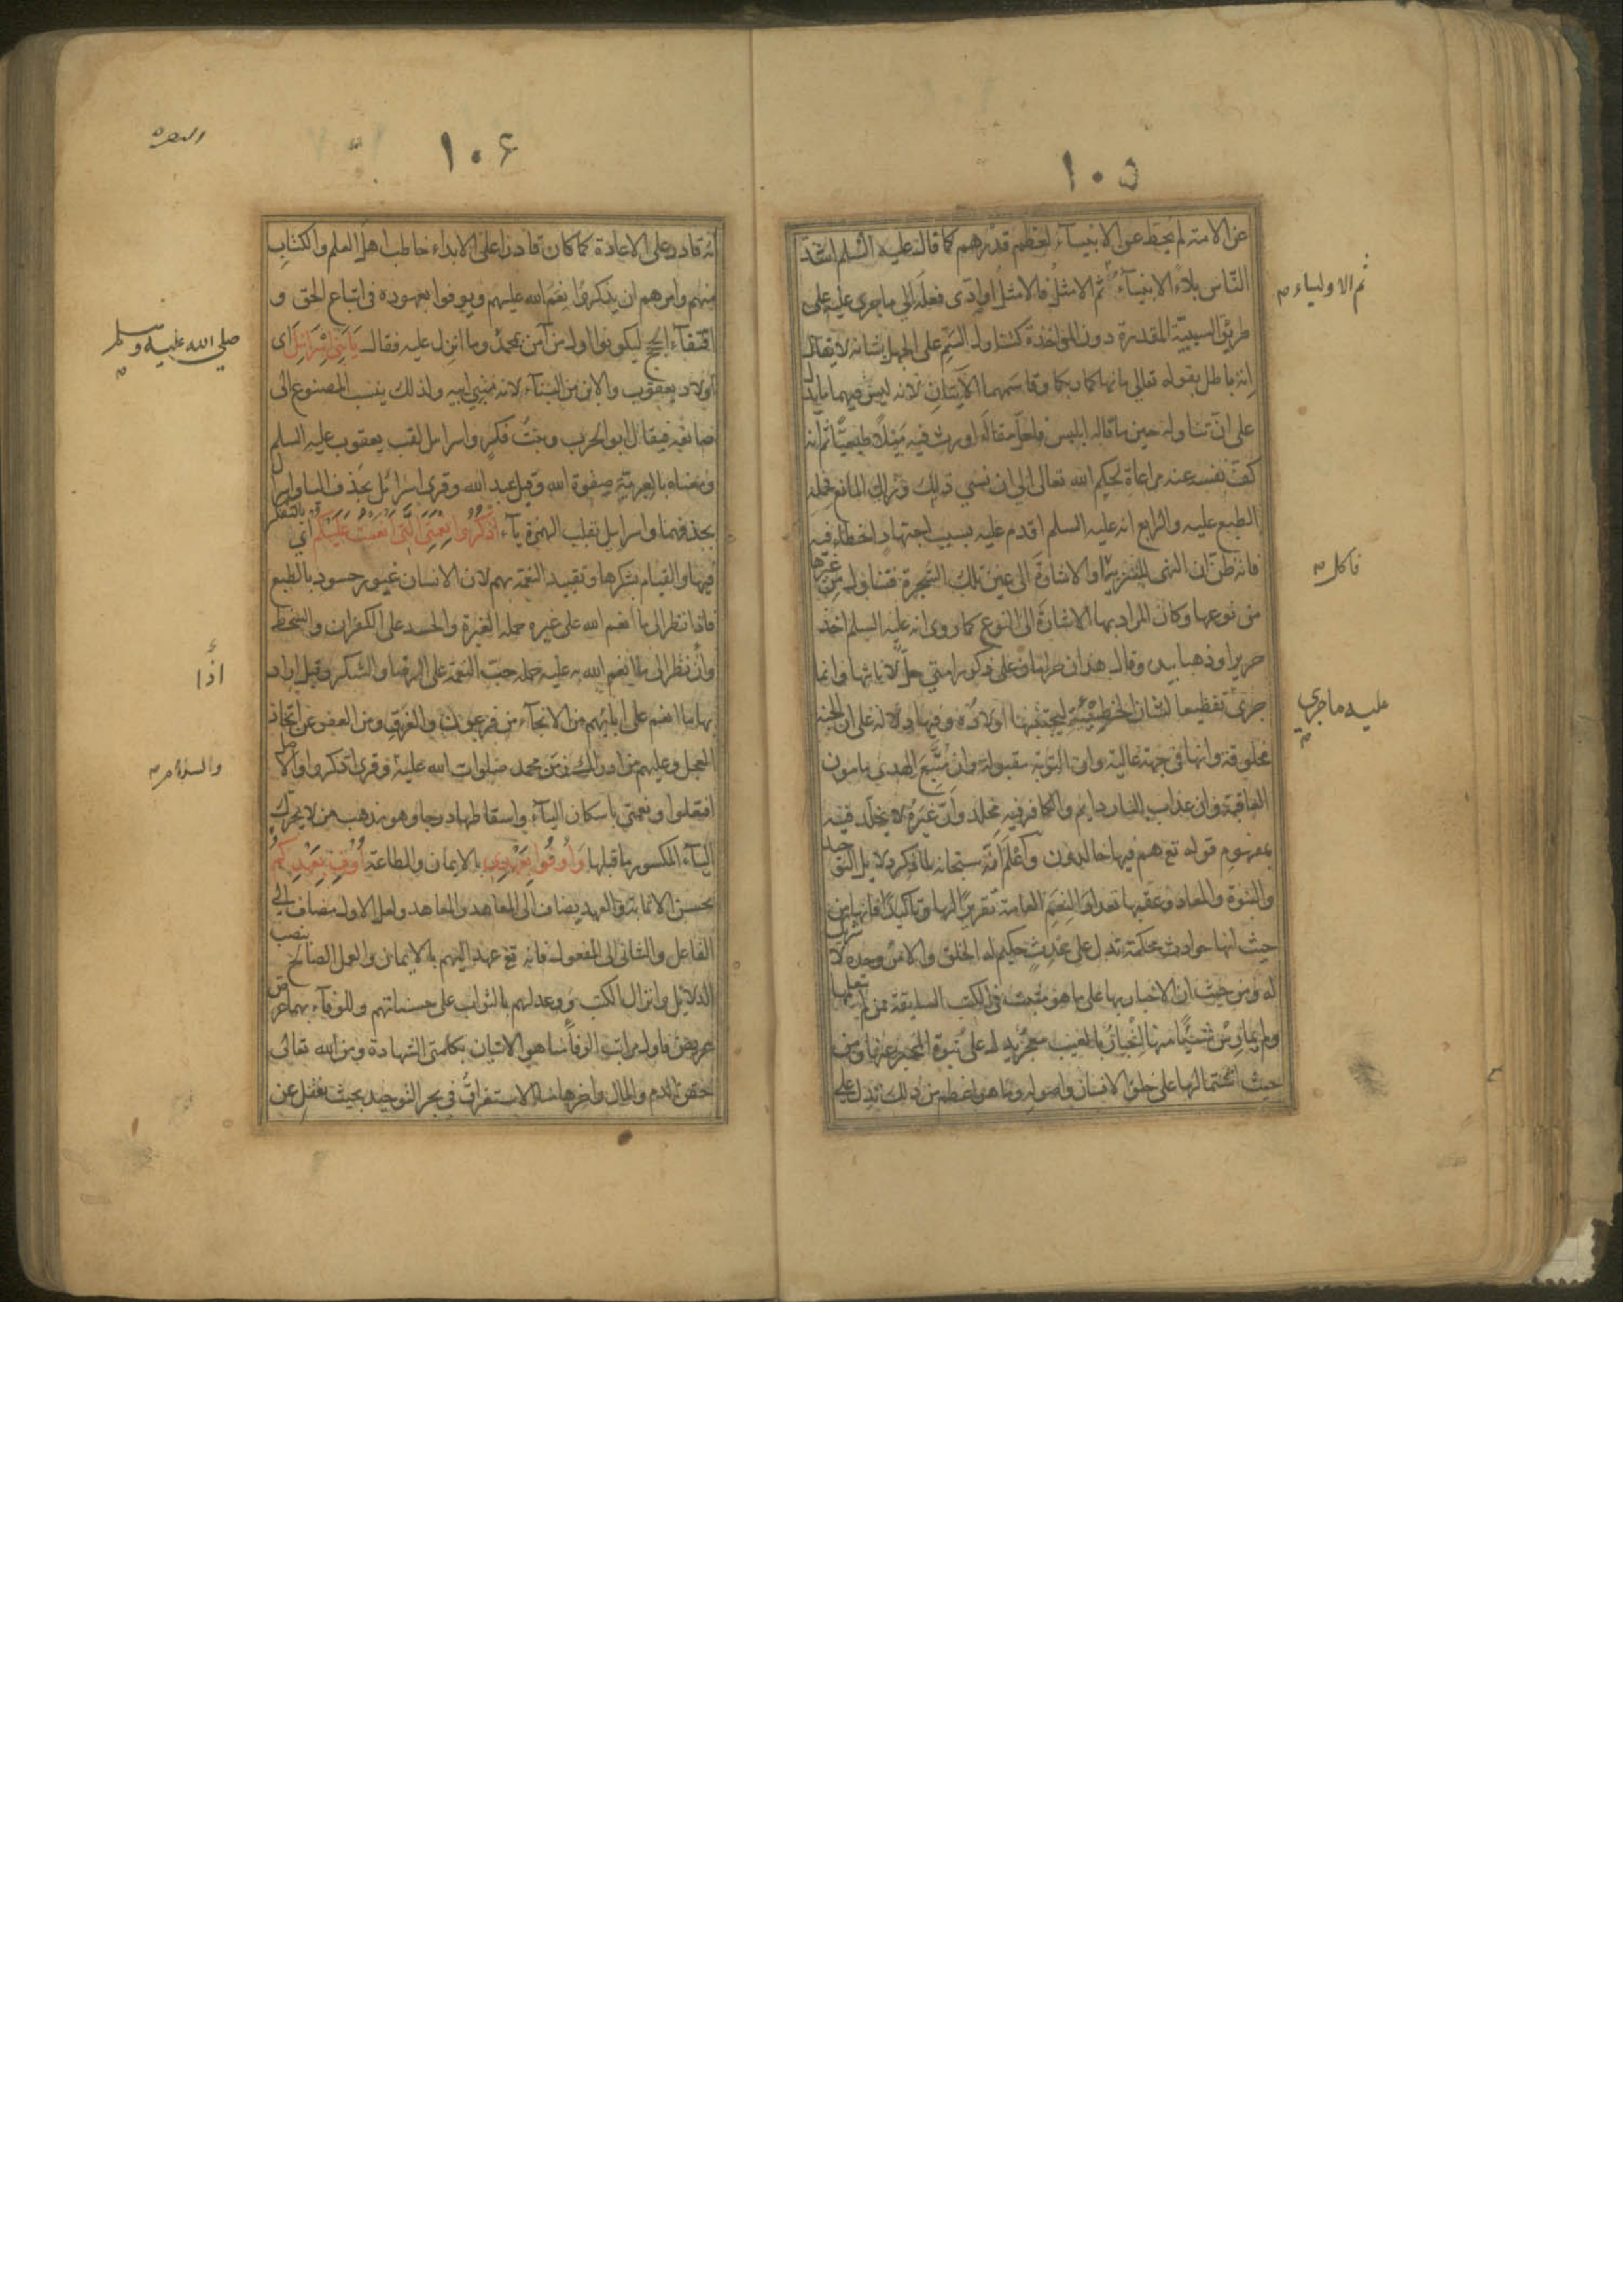 ١٠٥
عن الامة لم يحط عن الانبيآء لعظم قدرهم كما قال عليه السلم اشد
الناس بلاءً الانبيآء ثم الامثل فالامثل او ادى فعله الى ما جرى عليه على
ثم الاولياء
طريق السببية المقدرة دون المؤاخذة كتناول السم على الجهل بشانه لا يقال
انه باطل بقوله تعالى ما نهاكما ربكما وقاسمهما الآيتان لانه ليس فيهما ما يدل
على ان تناوله حين ما قاله ابليس فلعل مقاله اورث فيه ميلا طبيعيًّا ثم انه
كف نفسه عنه مراعاة لحكم الله تعالى الى ان نسى ذلك وزال المانع فحمله
الطبع عليه والرابع انه عليه السلم اقدم عليه بسبب اجتهاد اخطاء فيه
فانه ظن ان النهى للتنزيه او الاشارة الى عين تلك الشجرة فتناول من غيرها
فاكل
من نوعها وكان المراد بها الاشارة الى النوع كما روى انه عليه السلم اخذ
حريرا وذهبا بيده وقال هذان حرامان على ذكور امتي حل لاناثها وانما
جرى تفظيعا لشان الخطيئة ليجتنبها اولاده وفيها دلالة على ان الجنة
عليه ما جرى
مخلوقة وانها فى جهة عالية وان التوبة مقبولة وان متبع الهدى مامون
العاقبة وان عذاب النار دايم والكافر فيه مخلد وان غيره لا يخلد فيه
بمفهوم قوله تع هم فيها خالدون واعلم انه سبحانه لما ذكر دلايل التوحيد
والنبوة والمعاد وعقبها تعداد النعم العامة تقريرًا لها وتاكيدًا فانها من
حيث انها حوادث محكمة تدل على محدث حكيم له الخلق والامر وحده لا شريك
له ومن حيث ان الاخبار بها على ما هو مثبت فى الكتب السابقة ممن لم يتعلمها
ولم يمارس شيئًا منها اخبار بالغيب معجز يدل على نبوة المخبر عنها ومن
حيث اشتمالها على خلق الانسان واصوله وما هو اعظم من ذلك تدل على
١٠٦
البقره
انه قادر على الاعادة كما كان قادرا على الابداء خاطب اهل العلم والكتاب
منهم وامرهم ان يذكروا نعم الله عليهم ويوفوا بعهوده فى اتباع الحق و
اقتفآء الحجج ليكونوا اول من آمن بمحمد وما انزل عليه فقال يَا بَنِي إِسْرَائِلَ اى
صلى الله عليه وسلم
اولاد يعقوب والابن من البنآء لانه مبنى ابيه ولذلك ينسب المصنوع الى
صانعه فيقال ابو الحرب وبنت فكر واسرايل لقب يعقوب عليه السلم
ومعناه بالعبرية صفوة الله وقيل عبد الله وقرى اسرائل بحذف اليا واسرال
بحذفهما واسراييل بقلب الهمزة يآء اُذْكُرُوا نِعْمَتِيَ الَّتِي اَنْعَمْتُ عَلَيْكُمْ اى بالتفكر
فيها والقيام بشكرها وتقييد النعمة بهم لان الانسان غيور حسود بالطبع
فاذا نظر الى ما انعم الله على غيره حمله الغيرة والحسد على الكفران والسخط
وان نظر الى ما انعم الله به عليه حمله حب النعمة على الرضا والشكر وقيل اراد
اذا
بها ما انعم على ابائهم من الانجآء من فرعون والغرق ومن العفو عن اتخاذ
العجل وعليهم من ادراك زمن محمد صلوات الله عليه وقرى اذكروا والاصل
والسلام
افتعلوا ونعمتى باسكان اليآء واسقاطها درجا وهو مذهب من لا يحرك
اليآء المكسور ما قبلها وَاَوْفُوا بِعَهْدِى بالايمان والطاعة اُوفِ بِعَهْدِكُمْ
بحسن الاثابة والعهد يضاف الى المعاهِد والمعاهَد ولعل الاول مضاف الى
الفاعل والثانى الى المفعول فانه تع عهد اليهم بالايمان والعمل الصالح بنصب
الدلائل وانزال الكتب ووعد لهم بالثواب على حسناتهم وللوفآء بهما عرض
عريض فاول مراتب الوفآء منا هو الاتيان بكلمتى الشهادة ومن الله تعالى
حقن الدم والمال واخرها منا الاستغراق فى بحر التوحيد بحيث يغفل عن